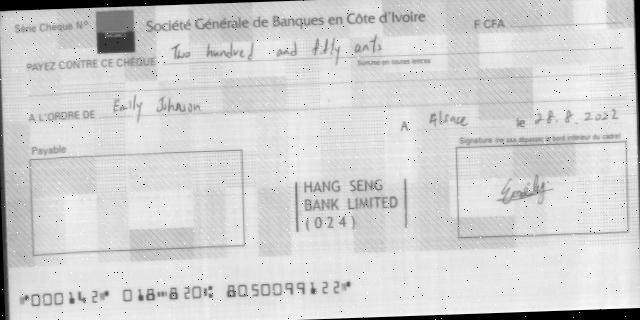 Série Chèque N°
Société Générale de Banques en Côte d'Ivoire
F CFA
PAYEZ CONTRE CE CHÈQUE Two hundred and fifty
Somme en toutes lettres
A L'ORDRE DE Emily Johnson
A Alsace le 28.8.2022
Payable
Signature (ne pas dépasser le bord inférieur du cadre)
HANG SENG
BANK LIMITED
(024)
Emily
"000142" 018"820: 8050099122"